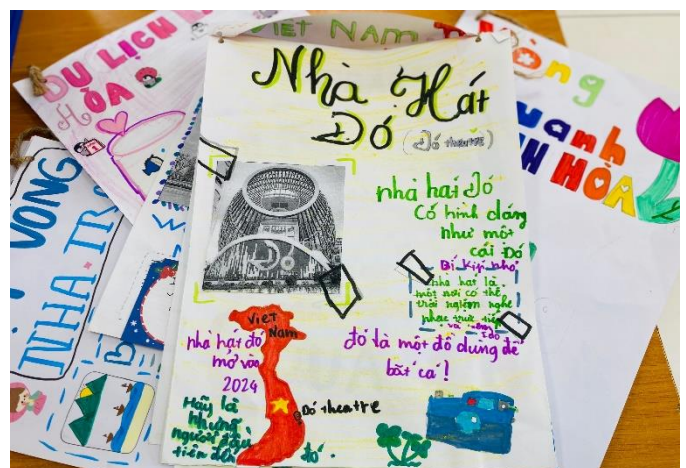 VIET NAM
DU LỊCH
HÒA
VÒNG
NHA TR
òng
uanh
H HÒA
Nhà Hát
Đó
(Đó theatre)
nhà hai đó
Có hình dáng
như một
cái Đó
Bí kíp nhỏ
nhà hát là
một nơi có thể
trải nghiệm nghe
nhạc trực tiếp
Việt
Nam
nhà hát đó
mở vào
2024
đó là một đồ dùng để
bắt cá!
Đó theatre
Hãy là
những
người đầu
tiên đến
đó.